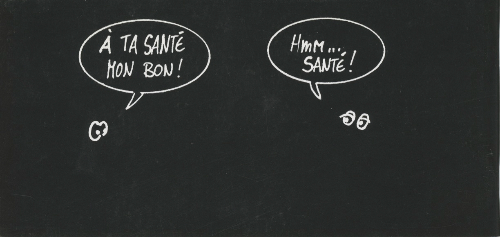 À TA SANTÉ
MON BON!
HMM...
SANTÉ!